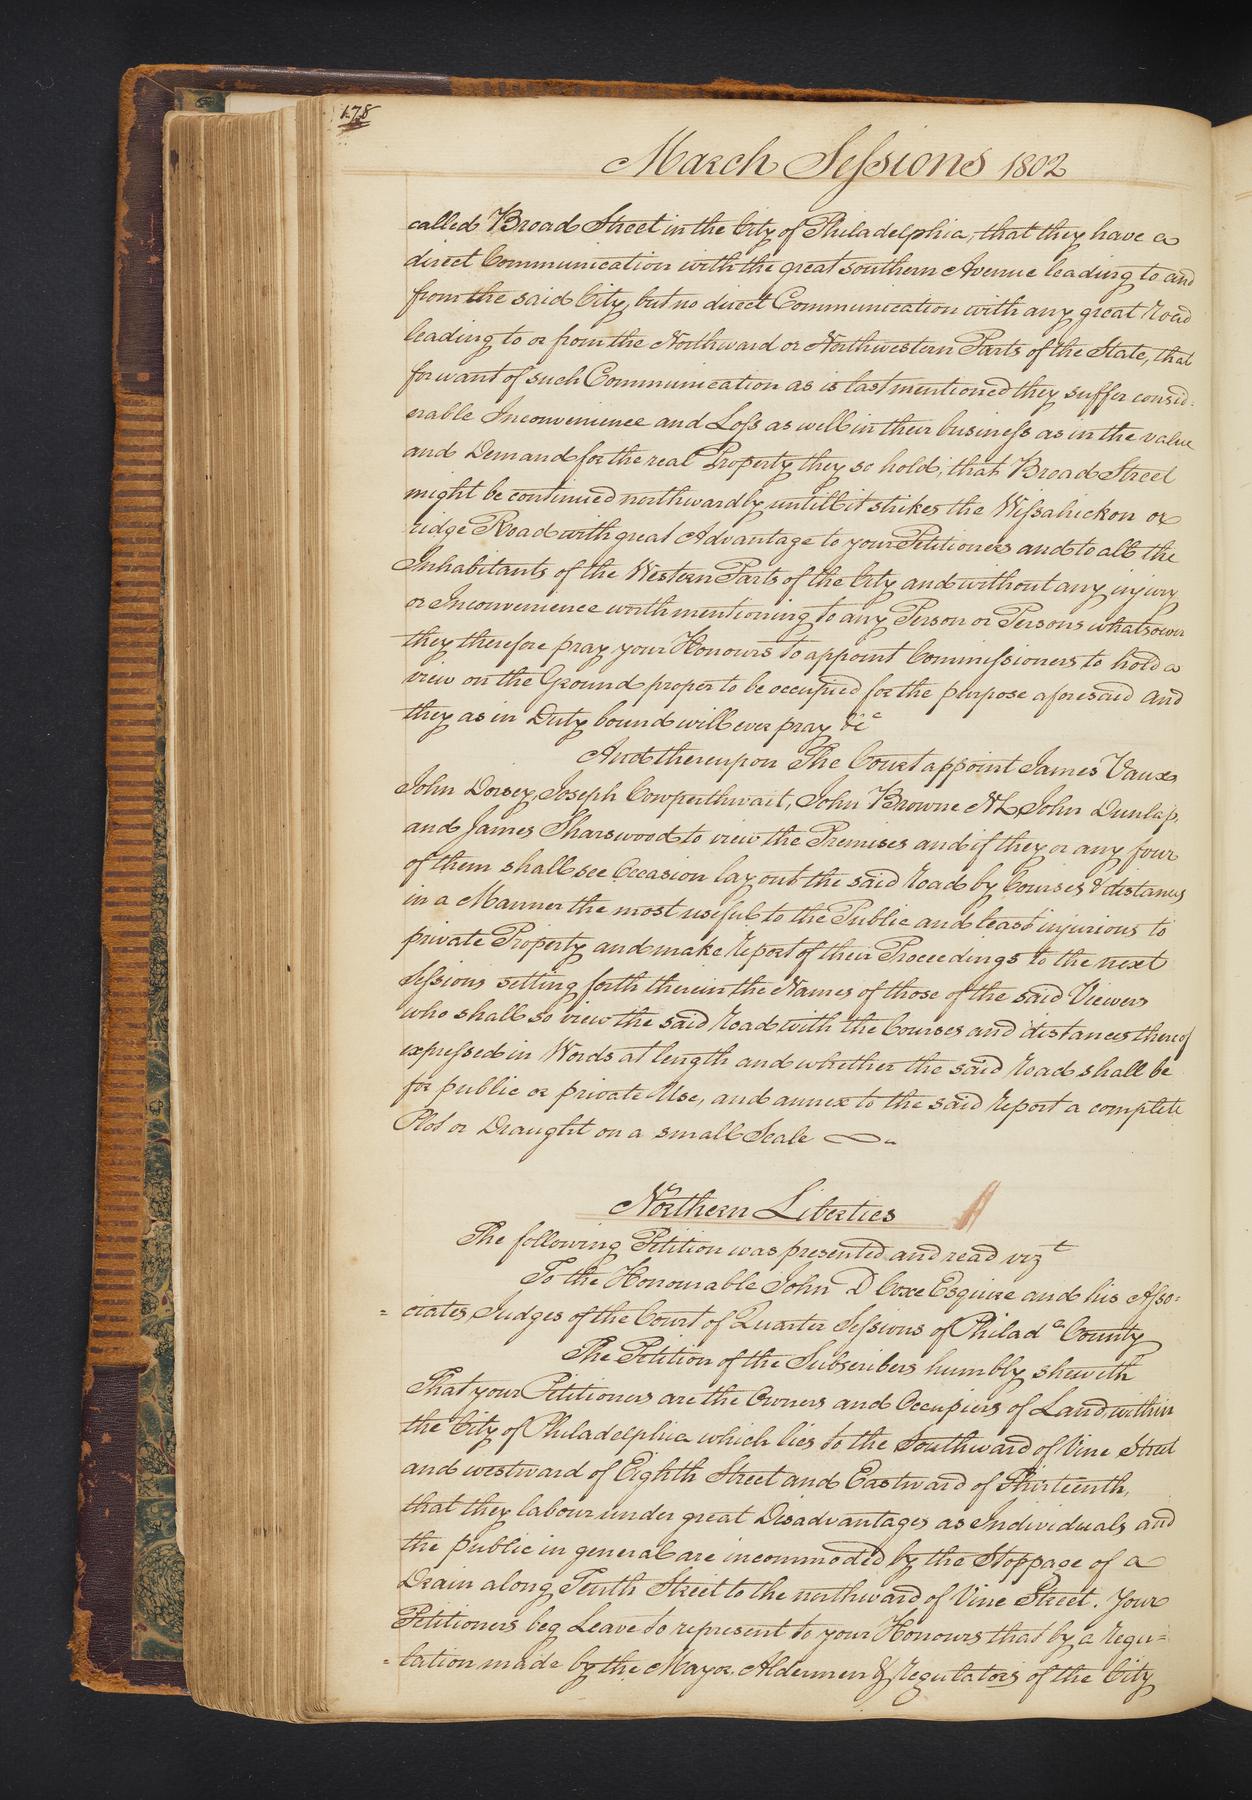 178
March Sessions 1802
called Broad Street in the City of Philadelphia, that they have a
direct Communication with the great southern Avenue leading to and
from the said City, but no direct Communication with any great road
leading to or from the Northward or Northwestern Parts of the State, that
for want of such Communication as is last mentioned they suffer consid-
erable Inconvenience and Loss as well in their business as in the value
and Demand for the real Property they so hold; that Broad Street
might be continued northwardly untill it strikes the Wissahickon or
ridge Road with great Advantage to your Petitioners and to all the
Inhabitants of the Western Parts of the City and without any injury
or Inconvenience worth mentioning to any Person or Persons whatsoever
they therefore pray your Honours to appoint Commissioners to hold a
view on the Ground proper to be occupied for the purpose aforesaid and
they as in Duty bound will ever pray &c
And thereupon The Court appoint James Vaux
John Dorsey, Joseph Cowperthwait, John Browne NL, John Dunlap,
and James Sharswood to view the Premises and if they or any four
of them shall see Occasion lay out the said road by Courses & distances
in a Manner the most useful to the Public and least injurious to
private Property and make report of their Proceedings to the next
Sessions setting forth therein the Names of those of the said Viewers
who shall so view the said road with the Courses and distances thereof
expressed in Words at length and whether the said road shall be
for public or private Use, and annex to the said report a complete
Plot or Draught on a small Scale
Northern Liberties
The following Petition was presented and read vizt
To the Honourable John D Coxe Esquire and his Asso-
=ciates, Judges of the Court of Quarter Sessions of Philada County
The Petition of the Subscribers humbly sheweth
That your Petitioners are the Owners and Occupiers of Land within
the City of Philadelphia which lies to the Southward of Vine Street
and westward of Eighth Street and Eastward of Thirteenth,
that they labour under great Disadvantages as Individuals and
the public in general are incommoded by the Stoppage of a
Drain along Tenth Street to the northward of Vine Street. Your
Petitioners beg Leave to represent to your Honours that by a regu=
=lation made by the Mayor, Aldermen & regulators of the City